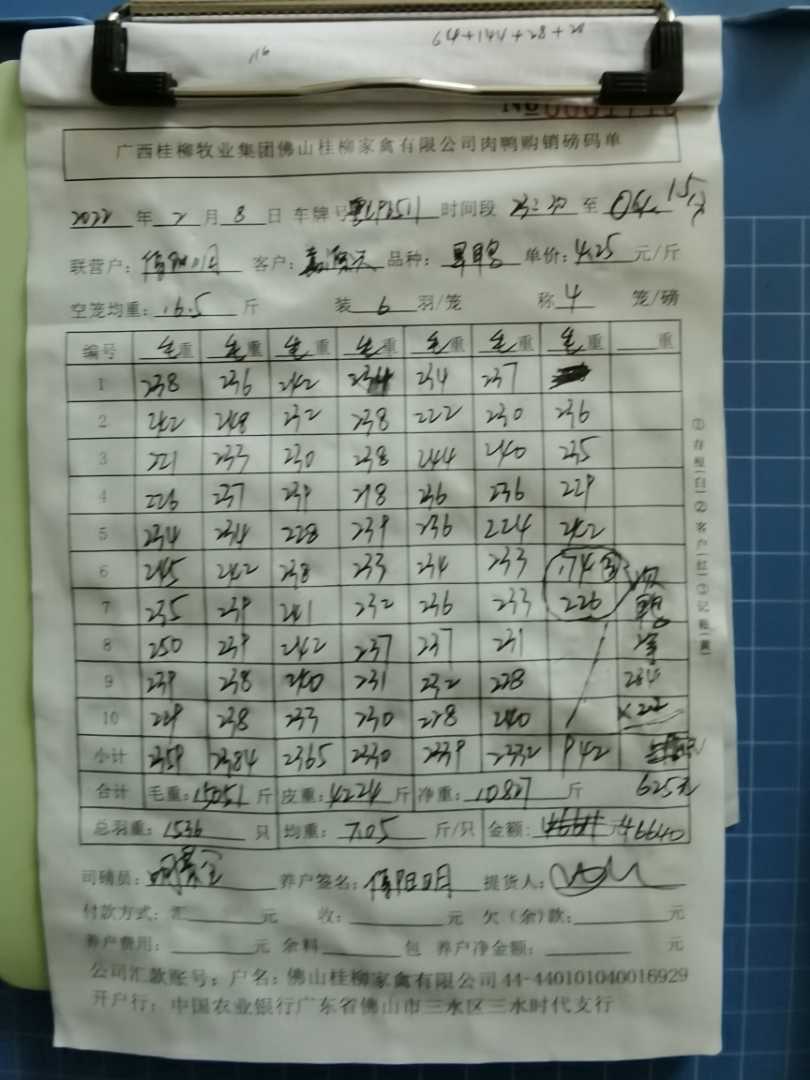 64+144+28+20
No 0001710
广西桂柳牧业集团佛山桂柳家禽有限公司肉鸭购销磅码单
2022 年 2 月 8 日 车牌号 时间段 至
联营户: 客户: 品种: 单价: 4.25 元/斤
空笼均重: 16.5 斤 装 6 羽/笼 称 4 笼/磅
编号 毛重 毛重 毛重 毛重 毛重 毛重 毛重 重
1 238 236 242 234 234 237
2 242 248 232 238 222 230 236
3 221 233 230 238 244 240 235
4 226 237 239 218 236 236 229
5 234 234 228 239 236 224 242
6 245 242 238 233 234 233 174
7 235 239 241 232 236 233 226
8 250 239 242 237 237 231
9 239 238 240 231 232 228 284
10 229 238 233 230 228 240
小计 2359 2384 2365 2330 2339 2332 942
合计 毛重: 15051 斤 皮重: 4224 斤 净重: 10827 斤 625元
总羽重: 1536 只 均重: 7.05 斤/只 金额: 元 46640
司磅员: 养户签名: 提货人:
付款方式: 汇 元 收: 元 欠(余)款: 元
养户费用: 元 余料 包 养户净金额: 元
公司汇款账号: 户名: 佛山桂柳家禽有限公司44-440101040016929
开户行: 中国农业银行广东省佛山市三水区三水时代支行
①存根(白)②客户(红)③记账(黄)